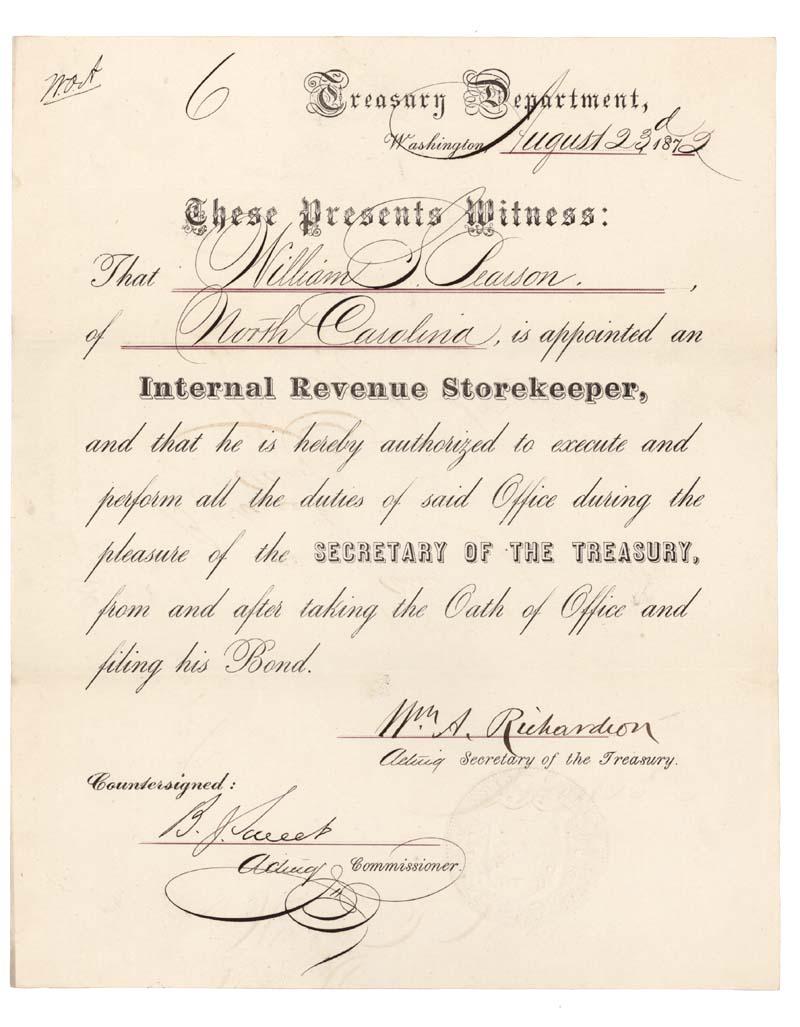 6
Treasury Department,
Washington, August 23d, 1872
These Presents Witness:
That William S. Pearson.,
of North Carolina, is appointed an
Internal Revenue Storekeeper,
and that he is hereby authorized to execute and
perform all the duties of said Office during the
pleasure of the SECRETARY OF THE TREASURY,
from and after taking the Oath of Office and
filing his Bond.
Wm A. Richardson
Acting Secretary of the Treasury.
Countersigned:
B. J.
Acting Commissioner.